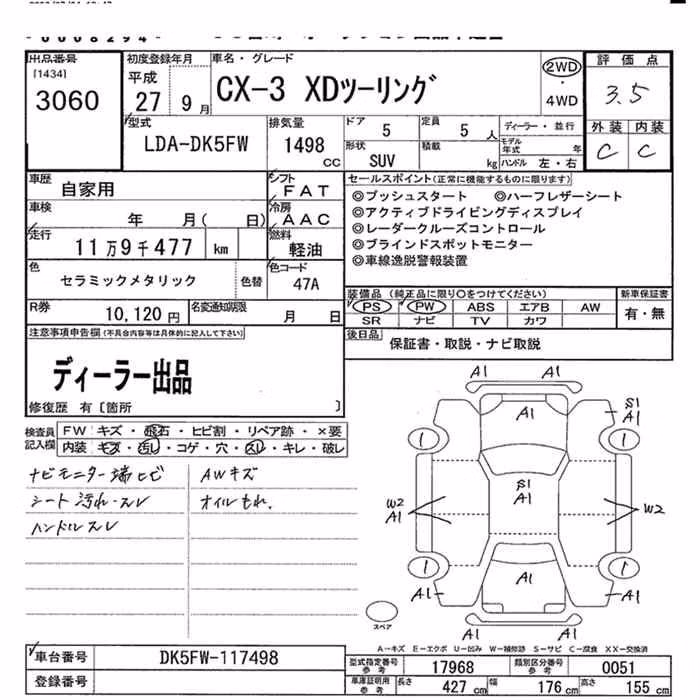 出品番号
[1434]
3060
初度登録年月
平成
27 9 月
車名・グレード
CX-3 XDツーリング
2WD
・
4WD
評価点
3.5
外装 内装
C C
型式
LDA-DK5FW
排気量
1498
CC
ドア 5
定員 5 人
形状 SUV
積載 kg
ディーラー・並行
モデル年式 年
ハンドル 左・右
車歴 自家用
シフト FAT
車検 年 月( 日)
冷房 AAC
走行 11万9千477 km
燃料 軽油
色 セラミックメタリック 色替
色コード 47A
R券 10,120円
名変通知期限 月 日
セールスポイント(正常に機能するものに限ります)
◎プッシュスタート ◎ハーフレザーシート
◎アクティブドライビングディスプレイ
◎レーダークルーズコントロール
◎ブラインドスポットモニター
◎車線逸脱警報装置
装備品(純正品に限り○をつけてください)
PS PW ABS エアB AW
SR ナビ TV カワ
新車保証書
有・無
後日品
保証書・取説・ナビ取説
注意事項申告欄(不具合内容等は具体的に記入して下さい)
ディーラー出品
修復歴 有〔箇所 〕
検査員記入欄
FW キズ・飛石・ヒビ割・リペア跡・×要
内装 キズ・汚し・コゲ・穴・スレ・キレ・破レ
ナビモニター端ヒビ
シート汚れ・スレ
ハンドルスレ
AWキズ
オイルもれ.
A1 A1
A1
S1
A1
1 1
S1
A1
W2
A1
W2
1 1
A1
A1 A1
スペア
A-キズ E-エクボ U-凹み W-補修跡 S-サビ C-腐食 XX-交換済
車台番号 DK5FW-117498
登録番号
型式指定番号 参考 17968
類別区分番号 参考 0051
車庫証明用 参考 長さ 427 cm 幅 176 cm 高さ 155 cm